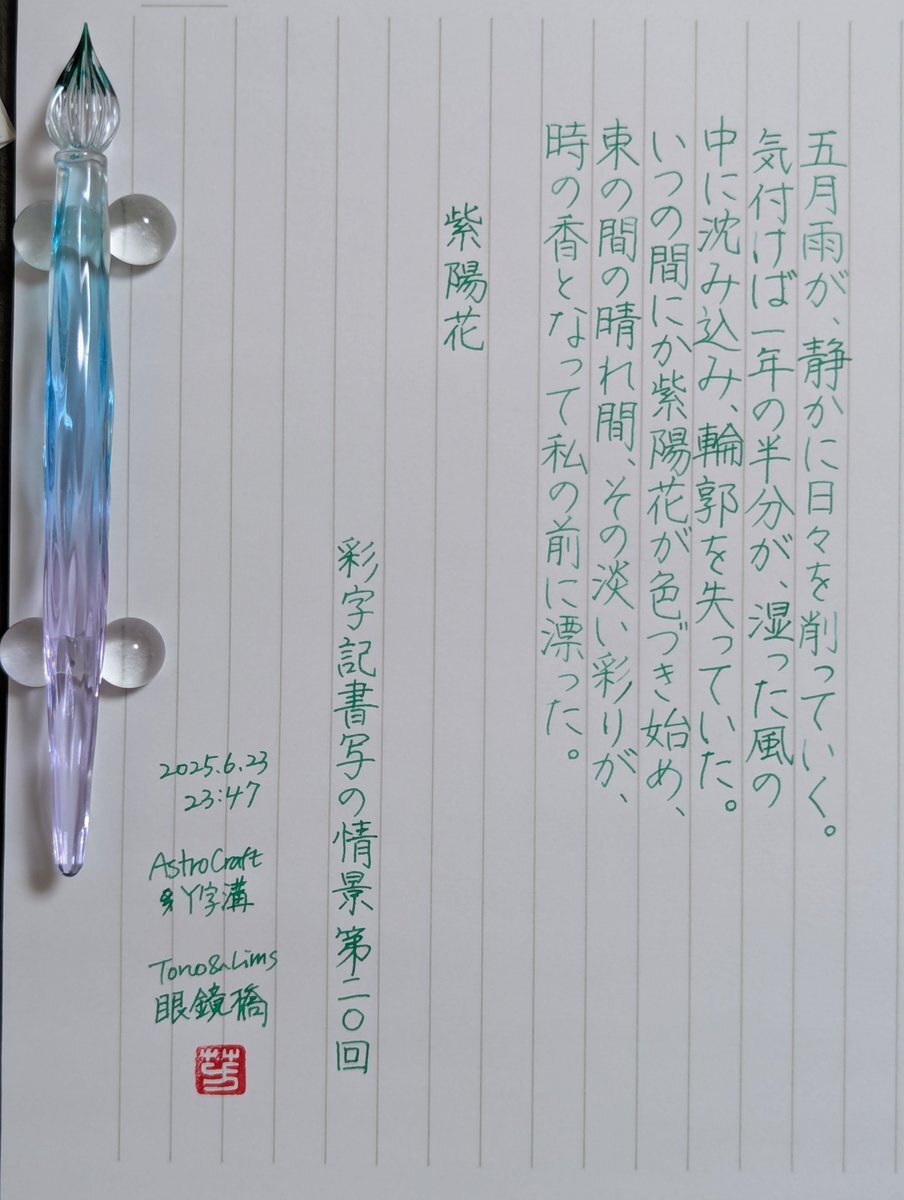 五月雨が、静かに日々を削っていく。
気付けば一年の半分が、湿った風の
中に沈み込み、輪郭を失っていた。
いつの間にか紫陽花が色づき始め、
束の間の晴れ間、その淡い彩りが、
時の香となって私の前に漂った。
紫陽花
彩字記書写の情景第二〇回
2025.6.23
23:47
AstroCraft
Y字溝
Tono&Lims
眼鏡橋